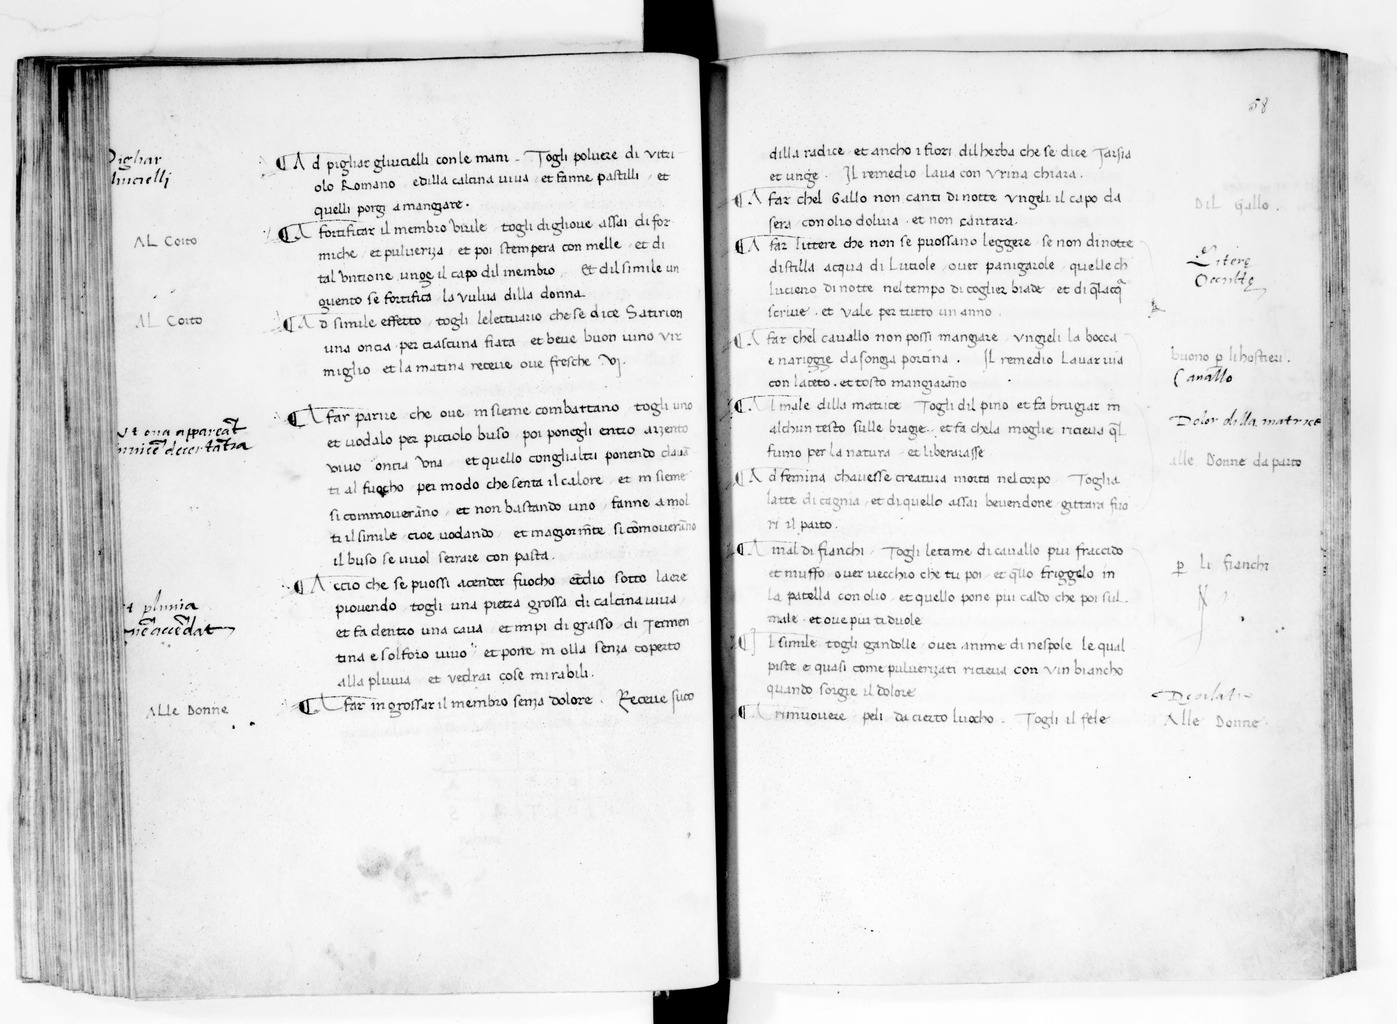 Pigliar
¶ Ad pigliar gliucielli con le mani. Togli polvere di vitri
olo Romano e dilla calcina viva et fanne pastilli et
quelli porgi a mangiare.
AL Coito
¶ A fortificar il membro virile togli di gliove assai di for
miche et pulveriza et poi stempera con melle et di
tal untione unge il capo dil membro. Et dil simile un
guento se fortifica la vulva dilla donna.
AL Coito
¶ Ad simile effetto togli lelettuario che se dice Satirion
una oncia per ciascuna fiata et beve buon vino ver
miglio et la matina receve ove fresche vj.
¶ A far parire che ove insieme combattano togli uno
et vodalo per picciolo buso poi ponegli entro arzento
vivo oncia una et quello conglialtri ponendo
ti al fuocho per modo che senta il calore et insieme
si commoverāno et non bastando uno fanne a mol
ti il simile cioe vodando et magiorm̄te si cōmoverāno
il buso se vuol serrare con pasta.
Vt ova appareāt
¶ Accio che se puossi acender fuocho etādio sotto laere
piovendo togli una pietra grossa di calcina viva
et fa dentro una cava et impi di grasso di Termen
tina e solforo vivo et pone in olla senza coperto
alla pluvia et vedrai cose mirabili.
pluvia
accēdat
Alle Donne
¶ A far ingrossar il membro senza dolore. Receve suco
58
dilla radice et ancho i fiori dil herba che se dice Tarsia
et unge. Il remedio lava con urina chiara.
¶ A far chel Gallo non canti di notte ungeli il capo da
sera con olio doliva et non cantara.
DIL Gallo.
¶ A far littere che non se puossano leggere se non di notte
distilla acqua di Luciole over panigarole quelle ch
lucieno di notte nel tempo di coglier biade et di q̄lacq̄
scrive et vale per tutto un anno.
Litere
Occulte
¶ A far chel cavallo non possi mangiare ungeli la bocca
e nariggie da songia porcina. Il remedio Lavar via
con laceto et tosto mangiarāno
buono p̱ li hostieri.
Cavallo
¶ Al male dilla matrice Togli dil pino et fa brugiar in
alchun testo sulle bragie et fa chela moglie riceva q̄l
fumo per la natura et liberarasse
Dolor dilla matrice
¶ Ad femina chavesse creatura morta nel corpo Toglia
latte di cagnia et di quello assai bevendone gittara fuo
ri il parto.
alle Donne da parto
¶ A mal di fianchi Togli letame di cavallo piu fraccido
et muffo over vecchio che tu poi et q̄llo friggelo in
la patella con olio et quello pone piu caldo che poi sul
male et ove piu ti duole
p̱ li fianchi
¶ Il simile togli gandolle over anime di nespole le qual
piste e quasi come pulverizati riceva con vin biancho
quando sorgie il dolore
¶ A rimuovere peli da cierto luocho. Togli il fele
Alle Donne